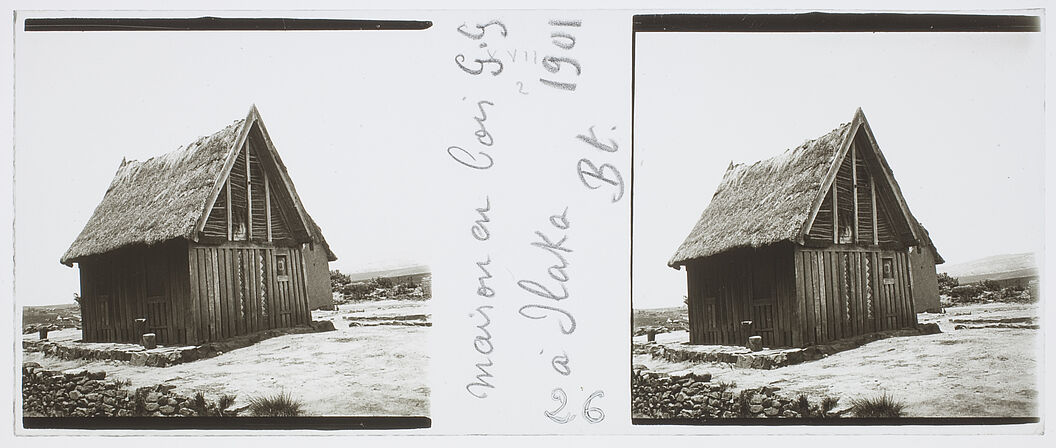 maison en bois G.G
XVII
2
à Ilaka Bt. 1901
26